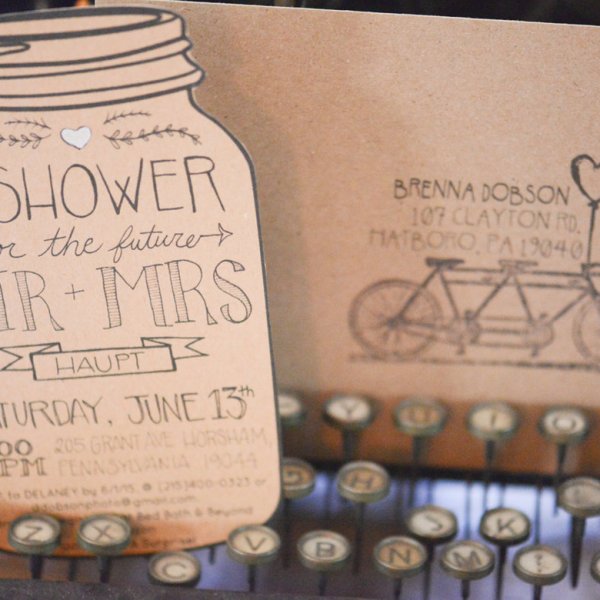 SHOWER
for the future
MR + MRS
HAUPT
SATURDAY, JUNE 13th
205 GRANT AVE HORSHAM,
PM PENNSYLVANIA 19044
to DELANEY by 6/1/15 @ (215)400-0323 or
ddobsonphoto@gmail.com
Bed Bath & Beyond
BRENNA DOBSON
107 CLAYTON RD.
HATBORO, PA 19040
Y U I O
G H K
Z X C V B N M J K L